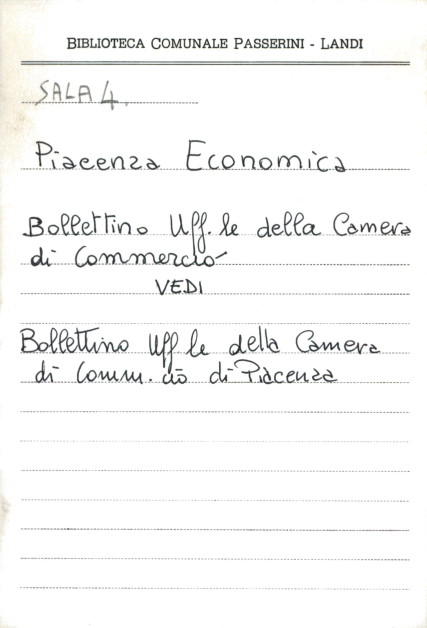 BIBLIOTECA COMUNALE PASSERINI - LANDI
SALA 4.
Piacenza Economica
Bollettino Uff.le della Camera
di Commercio
VEDI
Bollettino Uff le della Camera
di Comm.cio di Piacenza